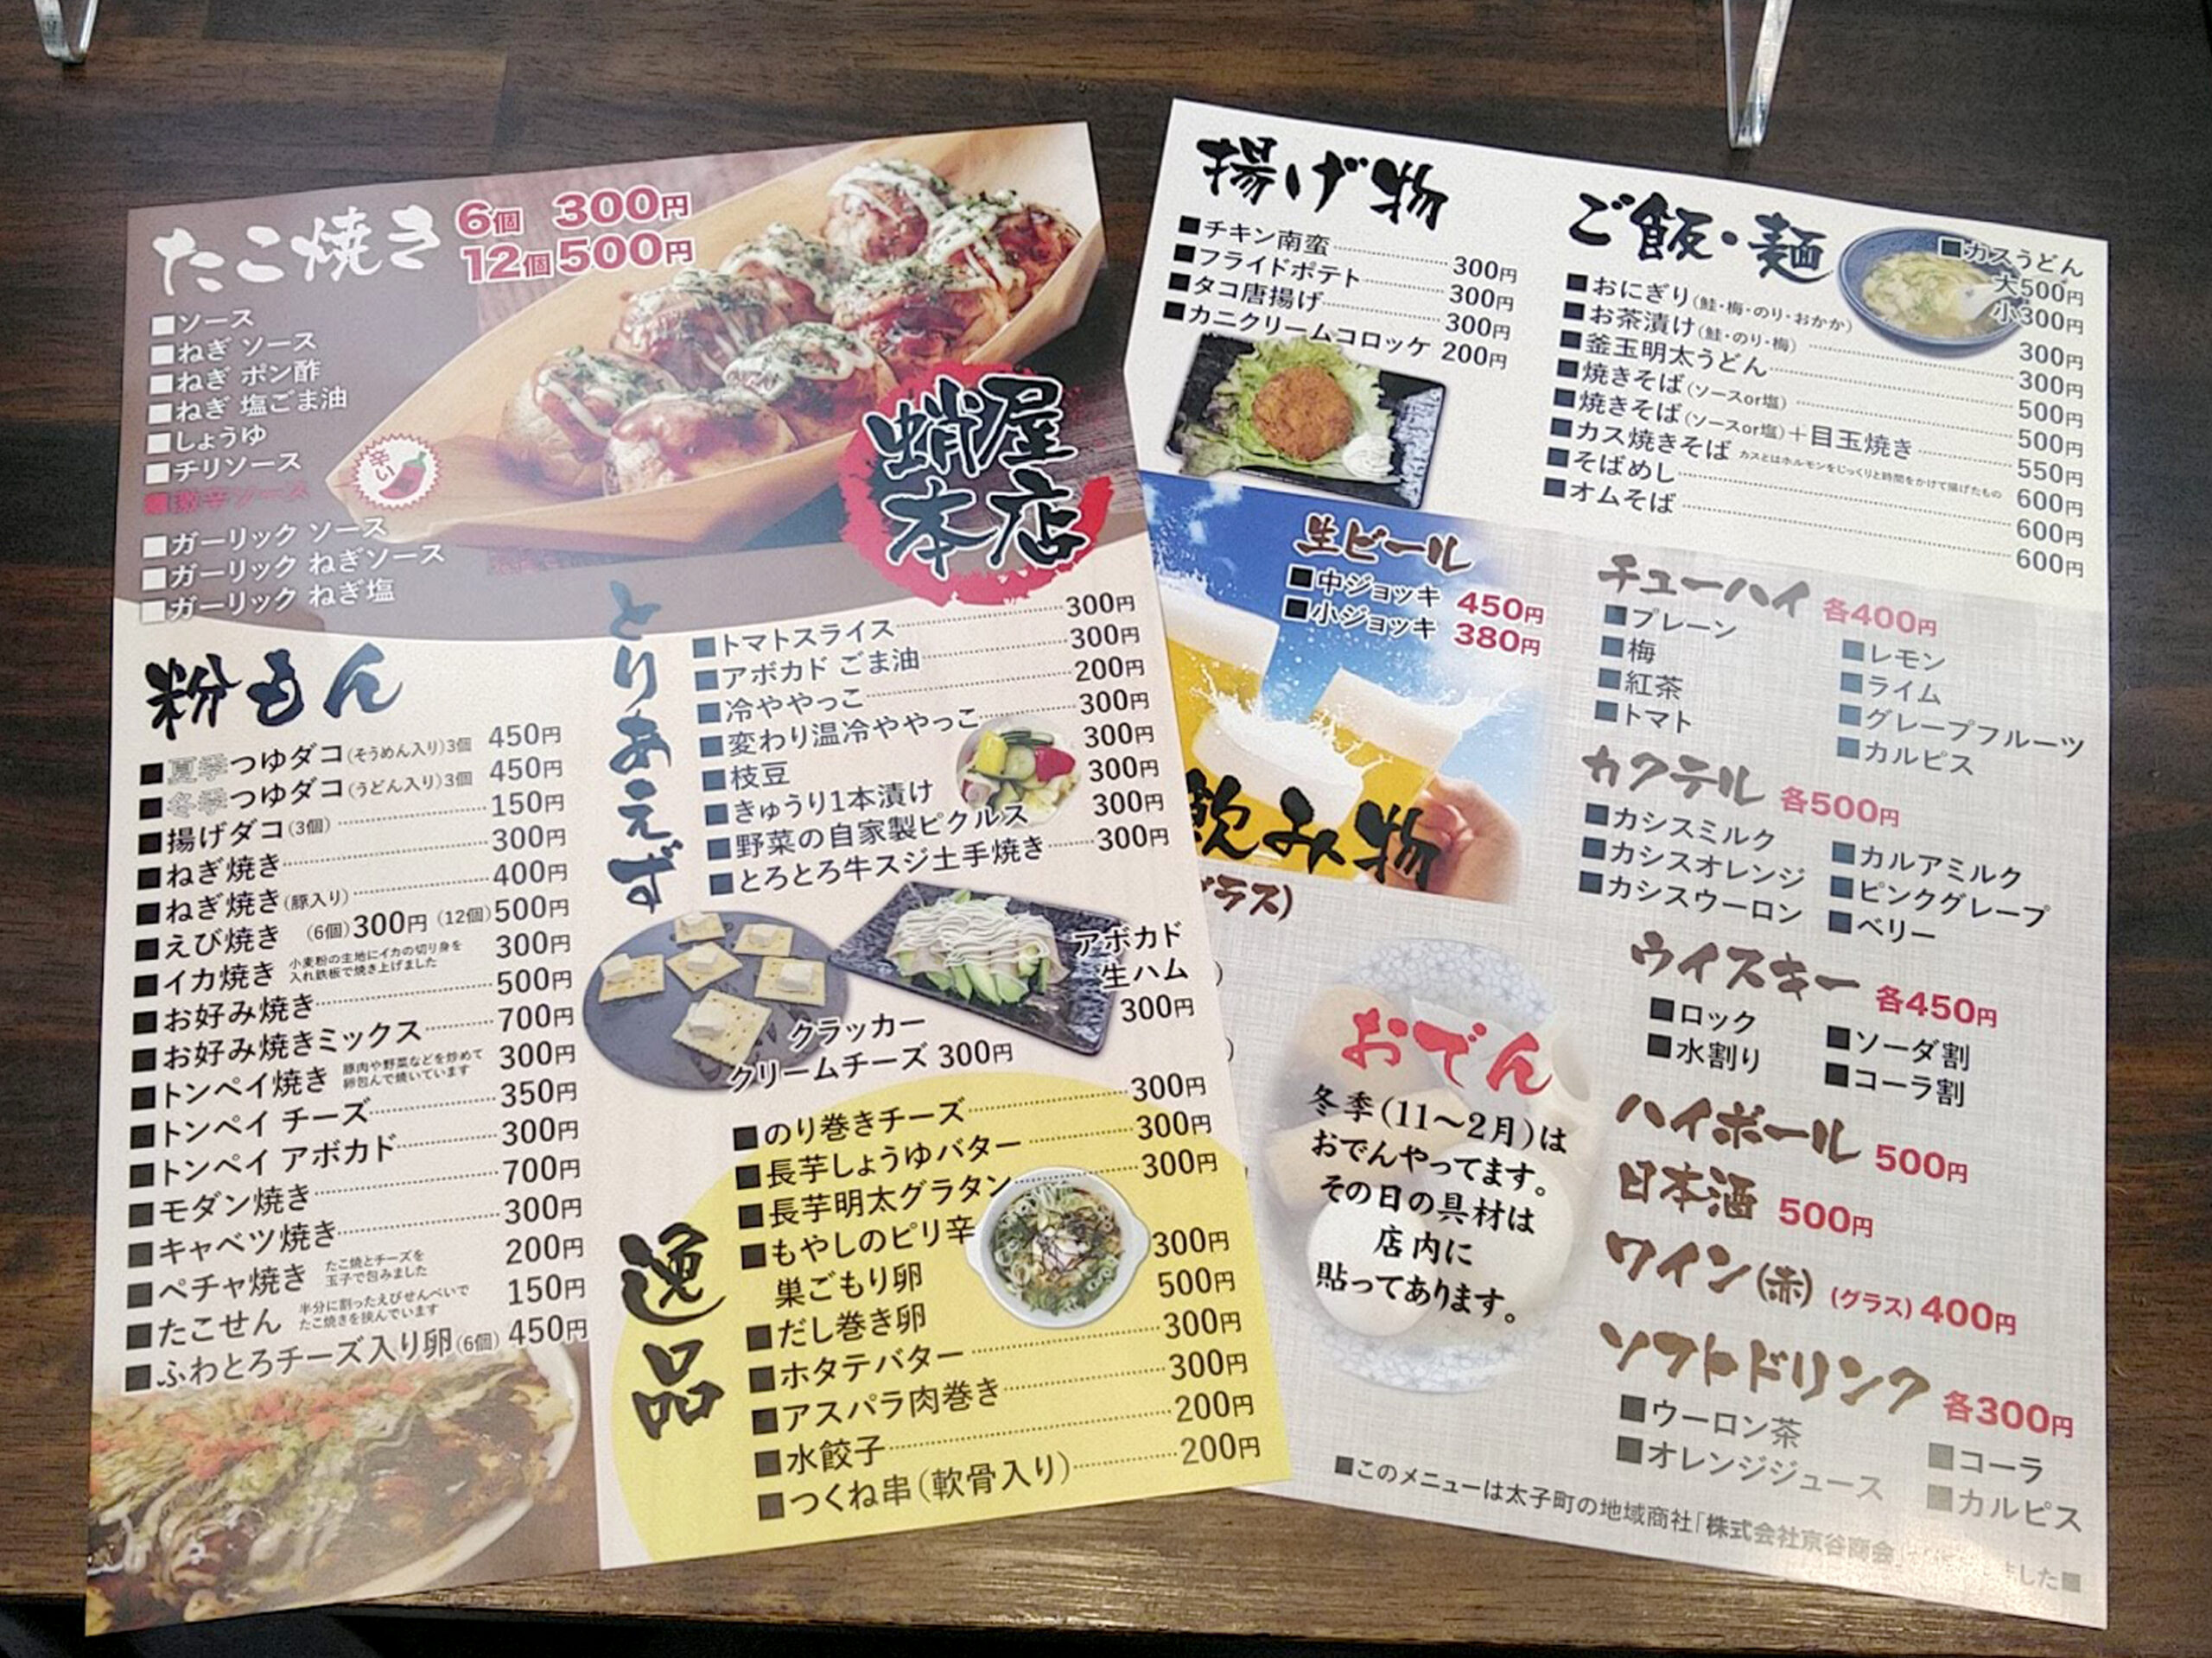 たこ焼き
6個 300円
12個 500円
■ソース
■ねぎ ソース
■ねぎ ポン酢
■ねぎ 塩ごま油
■しょうゆ
■チリソース
■激辛ソース
辛い
■ガーリック ソース
■ガーリック ねぎソース
■ガーリック ねぎ塩
蛸屋
本店
粉もん
■夏季つゆダコ(そうめん入り)3個 450円
■冬季つゆダコ(うどん入り)3個 450円
■揚げダコ(3個) 150円
■ねぎ焼き 300円
■ねぎ焼き(豚入り) 400円
■えび焼き (6個)300円 (12個)500円
■イカ焼き 小麦粉の生地にイカの切り身を入れ鉄板で焼き上げました 300円
■お好み焼き 500円
■お好み焼きミックス 700円
■トンペイ焼き 豚肉や野菜などを炒めて卵包んで焼いています 300円
■トンペイ チーズ 350円
■トンペイ アボカド 300円
■モダン焼き 700円
■キャベツ焼き 300円
■ペチャ焼き たこ焼とチーズを玉子で包みました 200円
■たこせん 半分に割ったえびせんべいでたこ焼きを挟んでいます 150円
■ふわとろチーズ入り卵(6個) 450円
とりあえず
■トマトスライス 300円
■アボカド ごま油 300円
■冷ややっこ 200円
■変わり温冷ややっこ 300円
■枝豆 300円
■きゅうり1本漬け 300円
■野菜の自家製ピクルス 300円
■とろとろ牛スジ土手焼き 300円
アボカド
生ハム
300円
クラッカー
クリームチーズ 300円
逸品
■のり巻きチーズ 300円
■長芋しょうゆバター 300円
■長芋明太グラタン 300円
■もやしのピリ辛
巣ごもり卵 300円
■だし巻き卵 500円
■ホタテバター 300円
■アスパラ肉巻き 300円
■水餃子 200円
■つくね串(軟骨入り) 200円
揚げ物
■チキン南蛮 300円
■フライドポテト 300円
■タコ唐揚げ 300円
■カニクリームコロッケ 200円
ご飯・麺
■カスうどん
大500円
小300円
■おにぎり(鮭・梅・のり・おかか) 300円
■お茶漬け(鮭・のり・梅) 300円
■釜玉明太うどん 500円
■焼きそば(ソースor塩) 500円
■焼きそば(ソースor塩)+目玉焼き 550円
■カス焼きそば カスとはホルモンをじっくりと時間をかけて揚げたもの 600円
■そばめし 600円
■オムそば 600円
生ビール
■中ジョッキ 450円
■小ジョッキ 380円
飲み物
グラス)
チューハイ 各400円
■プレーン
■梅
■紅茶
■トマト
■レモン
■ライム
■グレープフルーツ
■カルピス
カクテル 各500円
■カシスミルク
■カシスオレンジ
■カシスウーロン
■カルアミルク
■ピンクグレープ
■ベリー
ウイスキー 各450円
■ロック
■水割り
■ソーダ割
■コーラ割
ハイボール 500円
日本酒 500円
ワイン(赤) (グラス) 400円
ソフトドリンク 各300円
■ウーロン茶
■オレンジジュース
■コーラ
■カルピス
おでん
冬季(11〜2月)は
おでんやってます。
その日の具材は
店内に
貼ってあります。
■このメニューは太子町の地域商社「株式会社京谷商会」 ました■